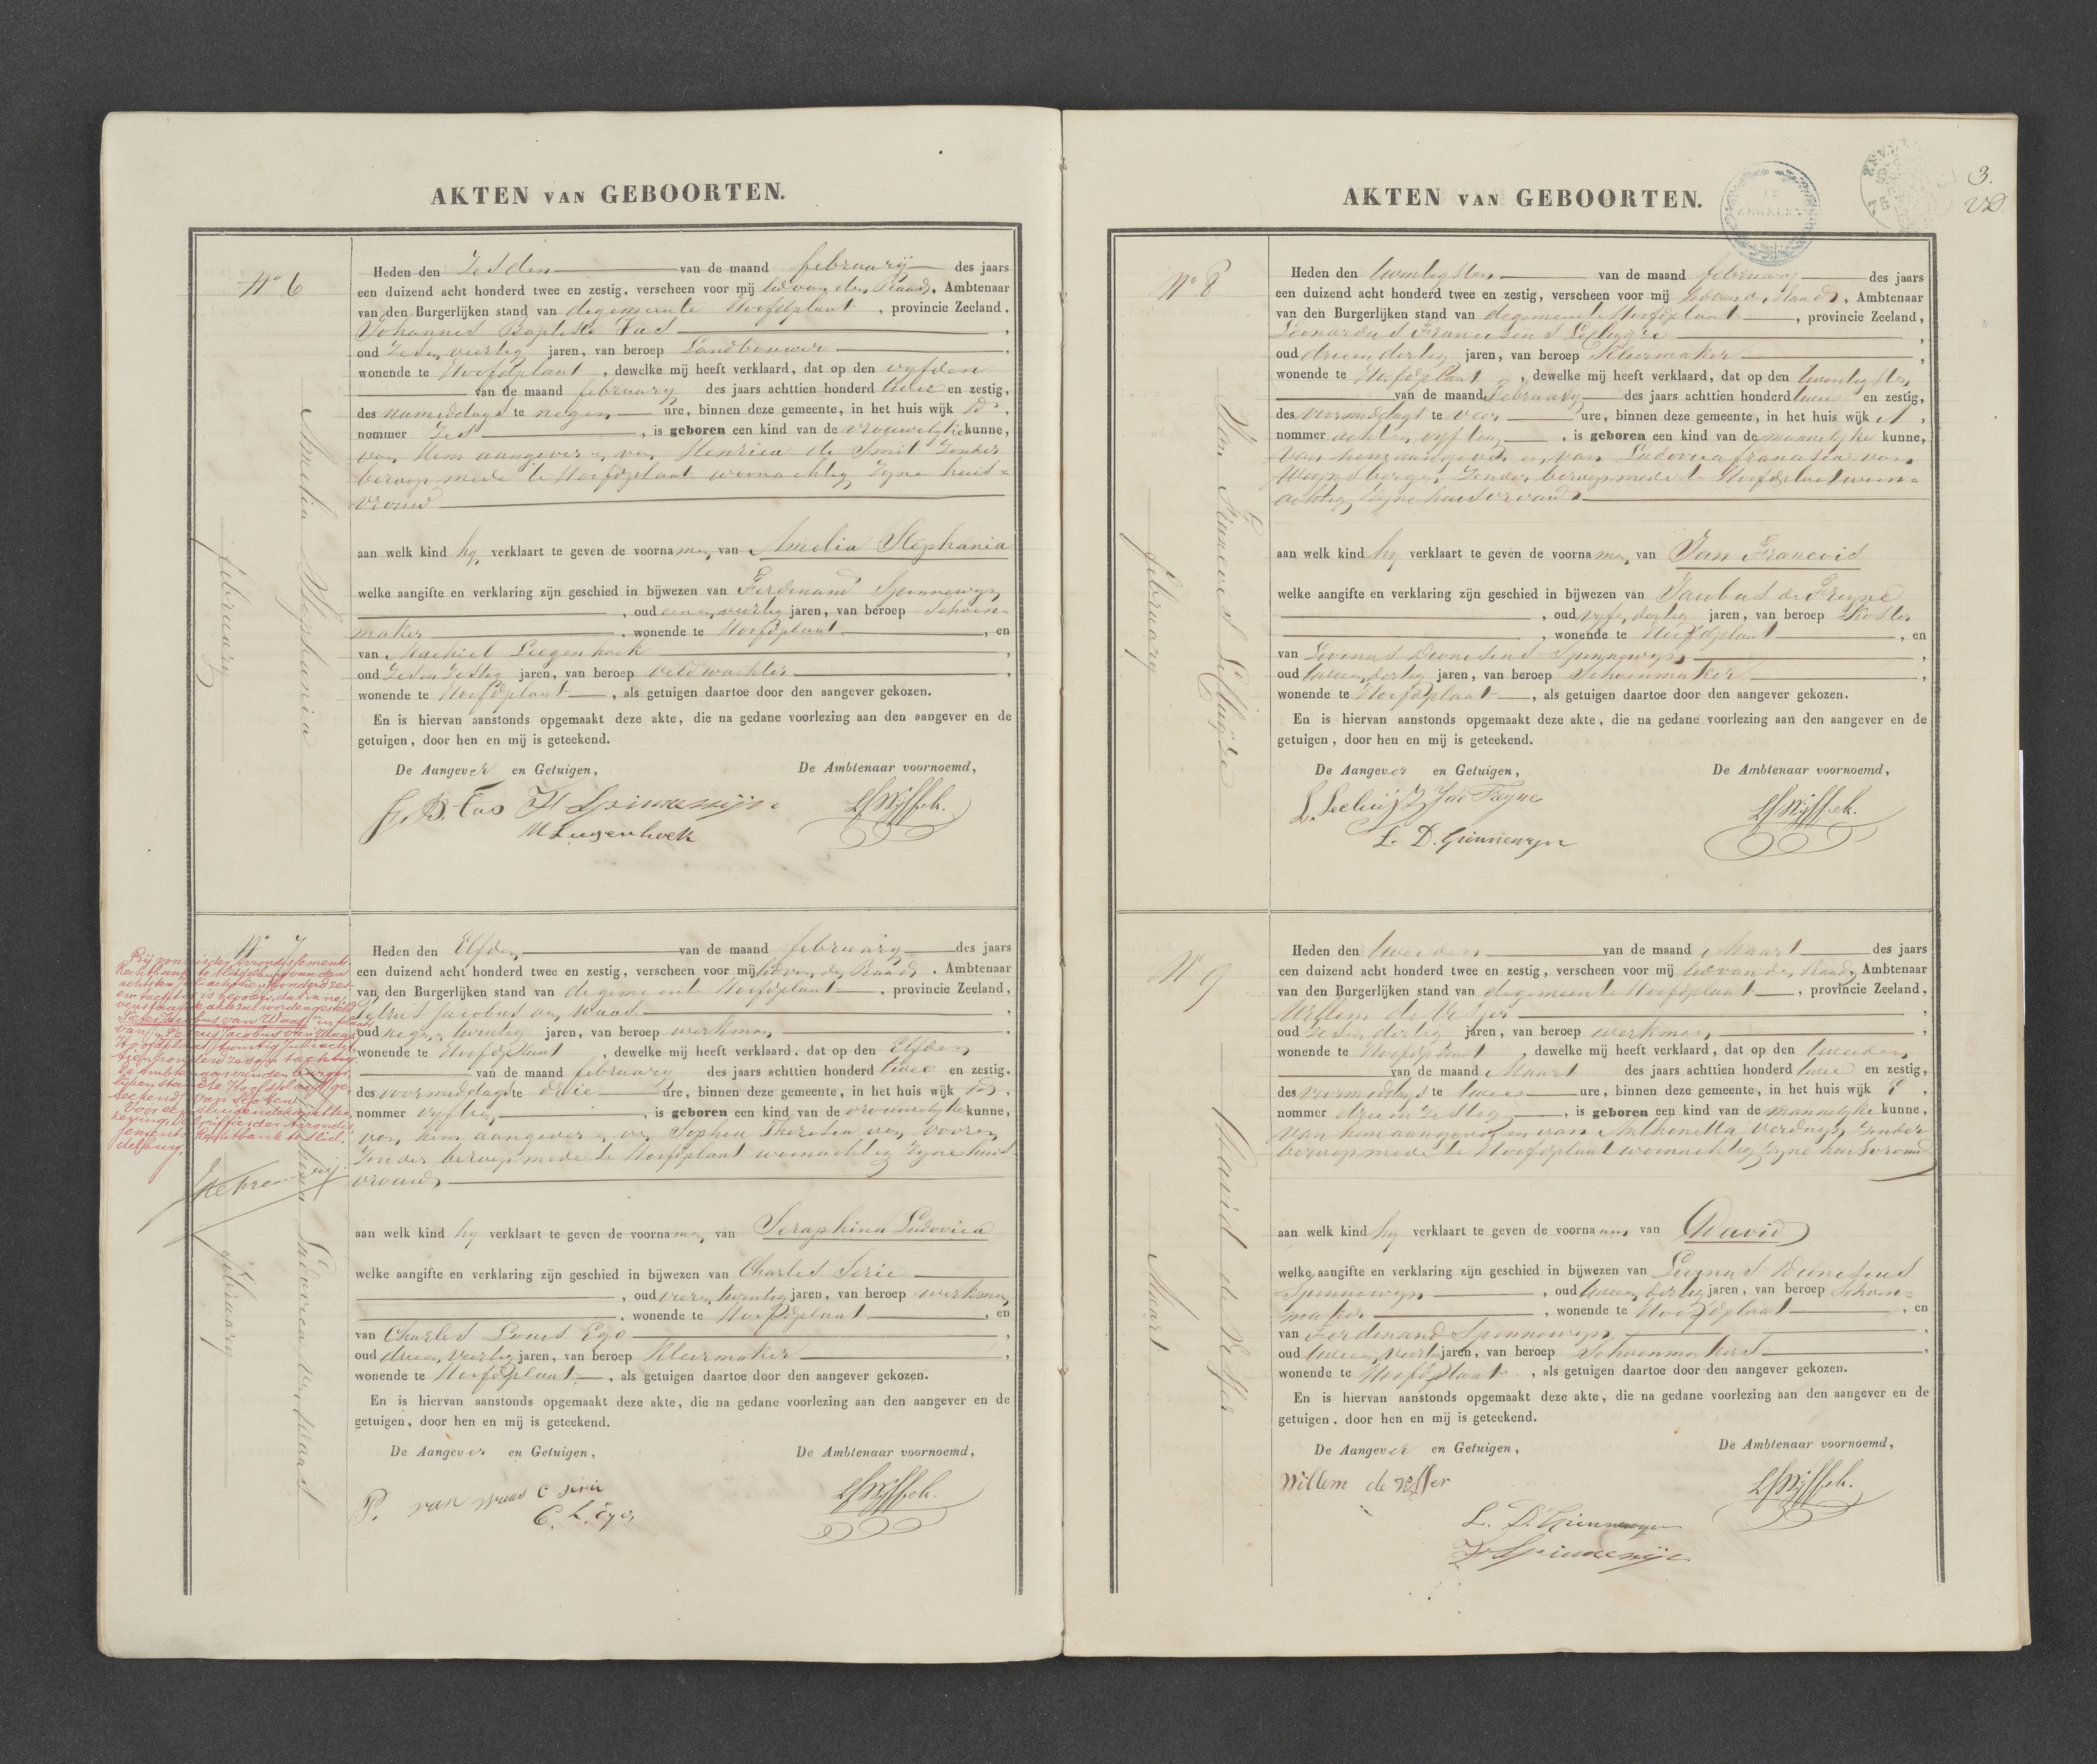 AKTEN VAN GEBOORTEN.
No 6
Amelia Stephania
februarij
Heden den Zesden van de maand februarij des jaars
een duizend acht honderd twee en zestig, verscheen voor mij lid van den Raad, Ambtenaar
van den Burgerlijken stand van de gemeente Hoofdplaat, provincie Zeeland,
Johannes Baptiste Fas,
oud Zes en veertig jaren, van beroep Landbouwer,
wonende te Hoofdplaat, dewelke mij heeft verklaard, dat op den vyfden
van de maand februarij des jaars achttien honderd twee en zestig,
des namiddags te negen ure, binnen deze gemeente, in het huis wijk D,
nommer Zes, is geboren een kind van de vrouwelyke kunne,
van Hem aangever en van Henrica de Smit Zonder
beroep mede te Hoofdplaat woonachtig Zyne huis=
vrouw
aan welk kind hy verklaart te geven de voornamen van Amelia Stephania
welke aangifte en verklaring zijn geschied in bijwezen van Ferdinand Spinnewyn
, oud een en veertig jaren, van beroep Schoen-
maker, wonende te Hoofdplaat, en
van Machiel Luegenhoek,
oud Zes en Zestig jaren, van beroep veldwachter,
wonende te Hoofdplaat, als getuigen daartoe door den aangever gekozen.
En is hiervan aanstonds opgemaakt deze akte, die na gedane voorlezing aan den aangever en de
getuigen, door hen en mij is geteekend.
De Aangever en Getuigen, De Ambtenaar voornoemd,
J. B. Fas F Spinnewijn
M Luegenhoek
No 7
Bij vonnis der Arrondissements
Rechtbank te Middelburg van den
achtsten Juli achttienhonderd zes
en tachtig is
Pieter Jacobus van Waas in plaats
van Petrus Jacobus van Waas
Hoofdplaat, twintig Juli acht
tien honderd zes en tachtig
De Ambtenaar van den burger
lijken stand te Hoofdplaat ge
teekend Van Houten
Ludovica van Waas
februarij
Heden den Elfden van de maand februarij des jaars
een duizend acht honderd twee en zestig, verscheen voor mij lid van den Raad, Ambtenaar
van den Burgerlijken stand van de gemeente Hoofdplaat, provincie Zeeland,
Petrus Jacobus van Waas,
oud negen en twintig jaren, van beroep werkman,
wonende te Hoofdplaat, dewelke mij heeft verklaard, dat op den Elfden
van de maand februarij des jaars achttien honderd twee en zestig,
des voormiddags te drie ure, binnen deze gemeente, in het huis wijk D,
nommer vyftien, is geboren een kind van de vrouwelyke kunne,
van hem aangever en van Sophia Theresia van Vooren
Zonder beroep mede te Hoofdplaat woonachtig Zyne huis
vrouw
aan welk kind hy verklaart te geven de voornamen van Seraphina Ludovica
welke aangifte en verklaring zijn geschied in bijwezen van Charles Serie
, oud vier en twintig jaren, van beroep werkman
, wonende te Hoofdplaat, en
van Charles Louis Ego,
oud drie en veertig jaren, van beroep Kleermaker,
wonende te Hoofdplaat, als getuigen daartoe door den aangever gekozen.
En is hiervan aanstonds opgemaakt deze akte, die na gedane voorlezing aan den aangever en de
getuigen, door hen en mij is geteekend.
De Aangever en Getuigen, De Ambtenaar voornoemd,
P. van waas C Serie
C. L. Ego
AKTEN VAN GEBOORTEN.
3.
No 8
februarij
Heden den twentigsten van de maand februarij des jaars
een duizend acht honderd twee en zestig, verscheen voor mij lid van den Raad, Ambtenaar
van den Burgerlijken stand van de gemeente Hoofdplaat, provincie Zeeland,
Leonardus Franciscus
oud drie en dertig jaren, van beroep Kleermaker,
wonende te Hoofdplaat, dewelke mij heeft verklaard, dat op den twentigsten
van de maand februarij des jaars achttien honderd twee en zestig,
des voormiddags te vier ure, binnen deze gemeente, in het huis wijk A,
nommer acht en vyftig, is geboren een kind van de mannelyke kunne,
van hem aangever en van Ludovica francisca van
Weynsbergen, Zonder beroep mede te Hoofdplaat woon=
achtig Zyne huisvrouw
aan welk kind hy verklaart te geven de voornamen van Jan Francois
welke aangifte en verklaring zijn geschied in bijwezen van Jacobus de Freyne
, oud vyf en dertig jaren, van beroep Koster
, wonende te Hoofdplaat, en
van Livinus Dionisius Spinnewyn,
oud twee en dertig jaren, van beroep Schoenmaker,
wonende te Hoofdplaat, als getuigen daartoe door den aangever gekozen.
En is hiervan aanstonds opgemaakt deze akte, die na gedane voorlezing aan den aangever en de
getuigen, door hen en mij is geteekend.
De Aangever en Getuigen, De Ambtenaar voornoemd,
L. D. Spinnewyn
No 9
David de Visser
Maart
Heden den tweeden van de maand Maart des jaars
een duizend acht honderd twee en zestig, verscheen voor mij lid van den Raad, Ambtenaar
van den Burgerlijken stand van de gemeente Hoofdplaat, provincie Zeeland,
Willem de Visser
oud Zes en dertig jaren, van beroep werkman,
wonende te Hoofdplaat, dewelke mij heeft verklaard, dat op den tweeden
van de maand Maart des jaars achttien honderd twee en zestig,
des voormiddags te twee ure, binnen deze gemeente, in het huis wijk E,
nommer drie en Zestig, is geboren een kind van de mannelyke kunne,
van hem aangever en van Anthonetta Verduyn Zonder
beroep mede te Hoofdplaat woonachtig Zyne huisvrouw
aan welk kind hy verklaart te geven de voornaam van David
welke aangifte en verklaring zijn geschied in bijwezen van Livinus Dionisius
Spinnewyn, oud twee en dertig jaren, van beroep Schoen=
maker, wonende te Hoofdplaat, en
van Ferdinand Spinnewyn,
oud twee en veertig jaren, van beroep Schoenmakers,
wonende te Hoofdplaat, als getuigen daartoe door den aangever gekozen.
En is hiervan aanstonds opgemaakt deze akte, die na gedane voorlezing aan den aangever en de
getuigen, door hen en mij is geteekend.
De Aangever en Getuigen, De Ambtenaar voornoemd,
Willem de visser
L. D. Spinnewyn
F Spinnewijn